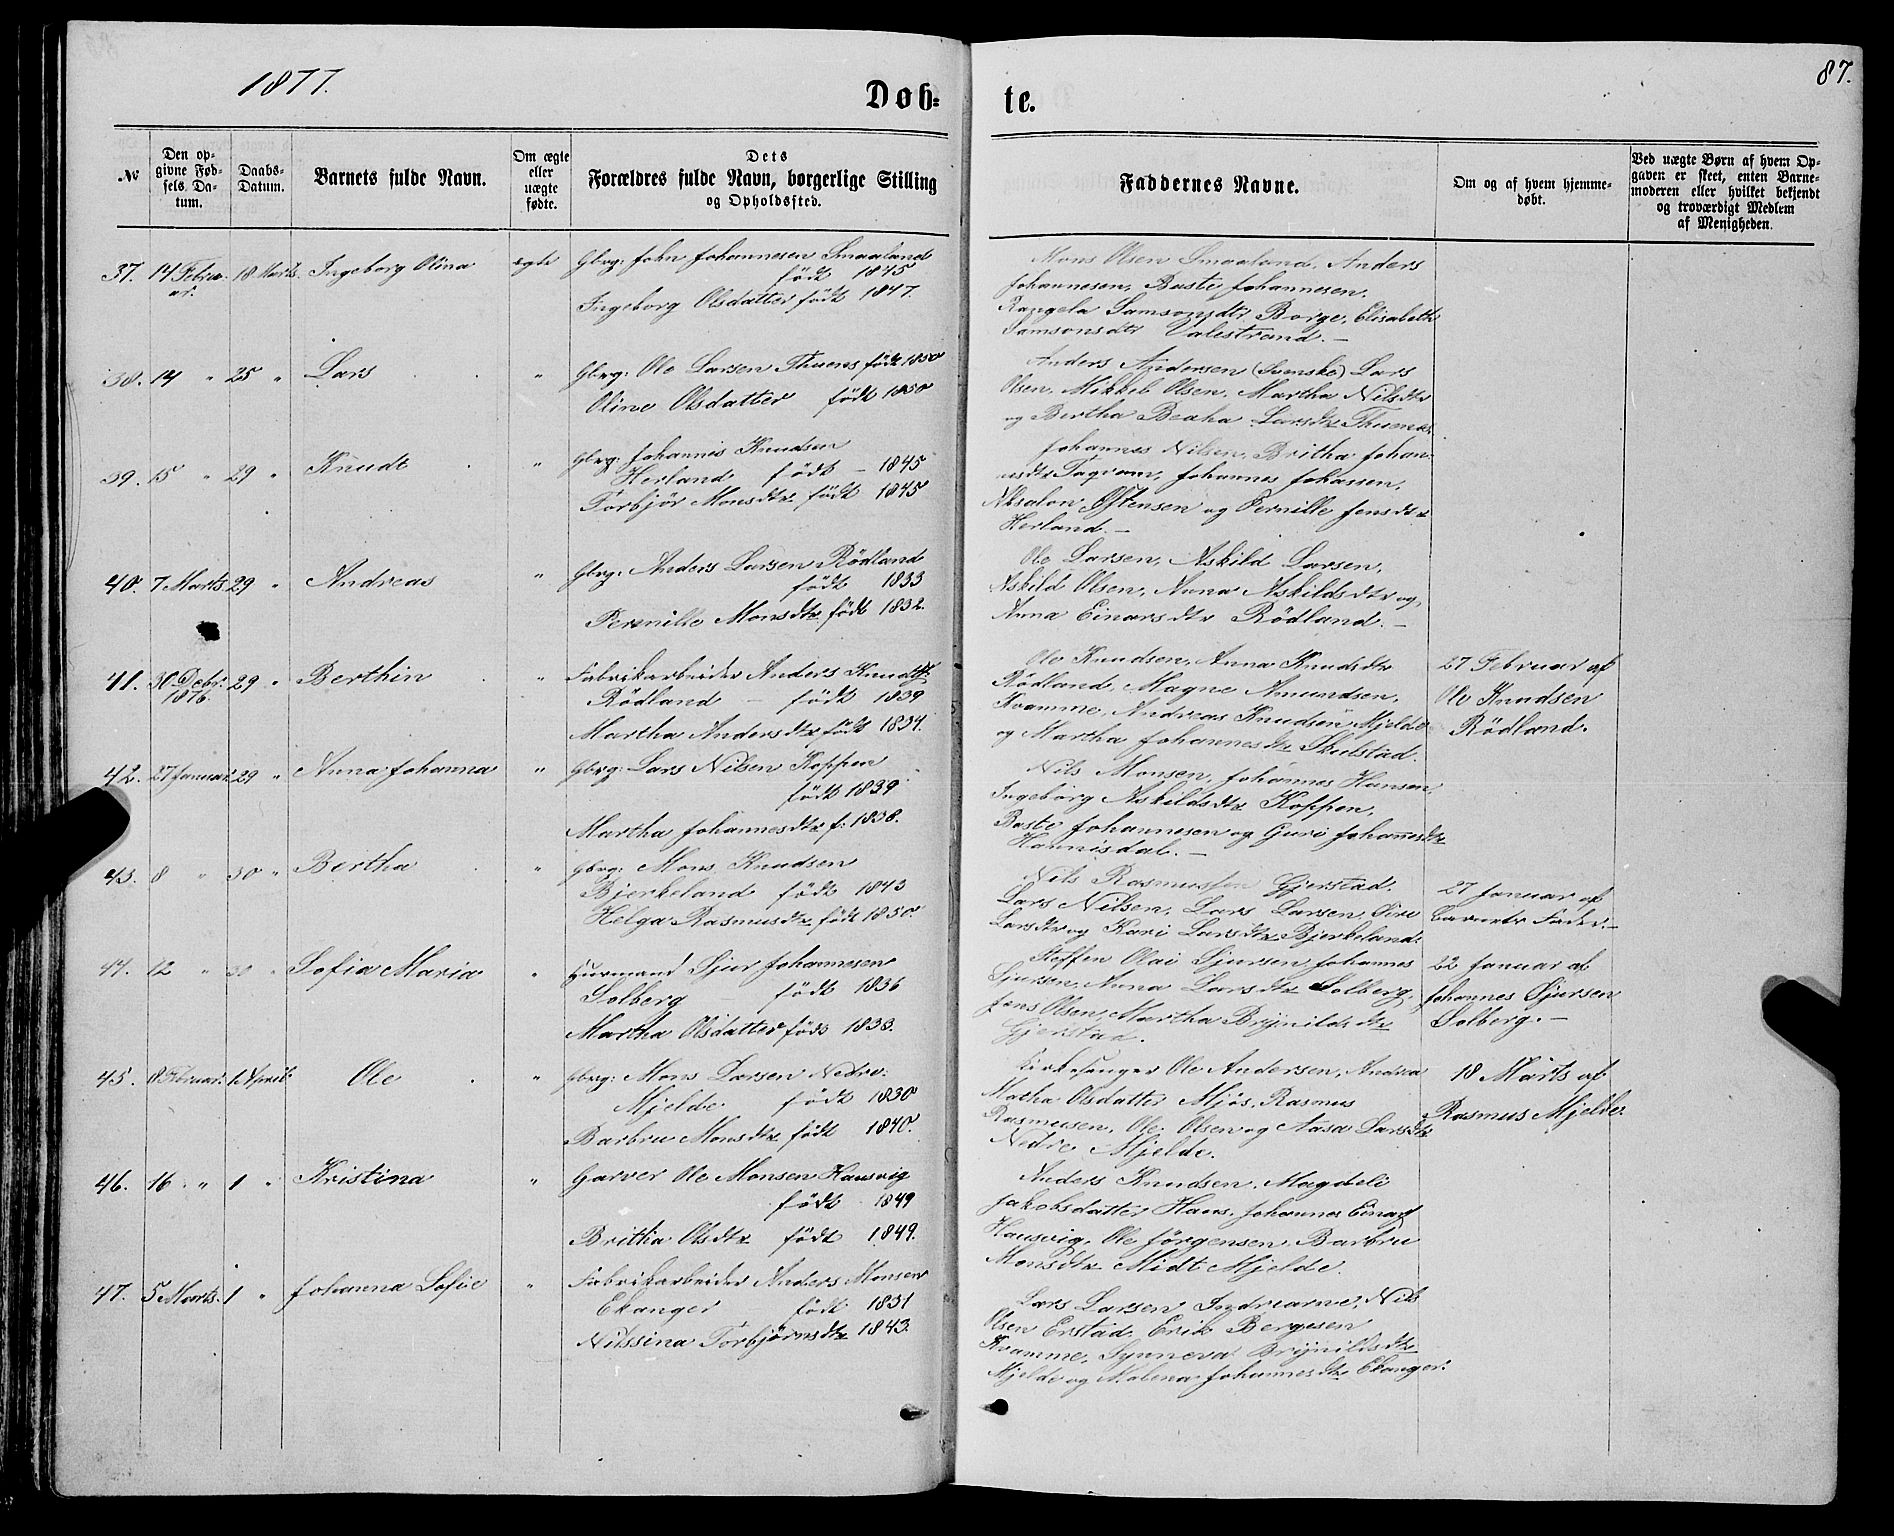 1877.
Døb-
te.
87.
No
Den op-
givne Fød-
sels. Da-
tum.
Daabs-
Datum.
Barnets fulde Navn.
Om ægte
eller
uægte
fødte.
Dets
Forældres fulde Navn, borgerlige Stilling
og Opholdssted.
Faddernes Navne.
Om og af hvem hjemme-
døbt.
Ved uægte Børn af hvem Op-
gaven er skeet, enten Barne-
moderen eller hvilket bekjendt
og troværdigt Medlem
af Menigheden.
37. 14 Februar. 18 Marts. Ingeborg Olina ægte Gbrg: John Johannesen Smaaland
født 1845
Ingeborg Olsdatter født 1847.
Mons Olsen Smaaland, Anders
Johannesen, Baste Johannesen,
Rangela Samsonsdtr Borge, Elisabeth
Samsonsdtr Valestrand. —
38. 14 " 25 " Lars " Gbrg: Ole Larsen Thuens født 1850
Oline Olsdatter født 1850
Anders Andersen (Svenske) Lars
Olsen, Mikkel Olsen, Martha Nilsdtr
og Bertha Beaha Larsdtr Thunes.
39. 15 " 29 " Knudt " Gbrg: Johannis Knudsen
Herland født — 1845
Torbjør Monsdtr født 1845
Johannes Nilsen, Britha Johan-
nesdtr Tagvam, Johannes Johassen,
Absalon Østensen og Pernille Jensdtr
Herland. —
40. 7 Marts 29 " Andreas " Gbrg: Anders Larsen Rödland
født 1833
Pernille Monsdtr født 1832.
Ole Larsen, Askild Larsen,
Askild Olsen, Anna Askildsdtr og
Anna Einarsdtr Rödland. —
41. 30 Debr. 1876. 29 " Berthin " Fabrikarbeider Anders Knudts.
Rödland — født 1839
Martha Andersdtr født 1834.
Ole Knudsen, Anna Knudsdtr
Rödland, Magne Amundsen,
Kvamme, Andreas Knudsen Mjelde
og Martha Johannesdtr Skulstad.
27 Februar af
Ole Knudsen
Rödland.
42. 27 Januar. 29 " Anna Johanna " Gbrg: Lars Nilsen Koppen
født 1839
Martha Johannesdtr f: 1838.
Nils Monsen, Johannes Hansen,
Ingeborg Askildsdtr Koppen,
Baste Johannesen og Guri Johannesdtr
Hannisdal. —
43. 8 " 30 " Bertha " Gbrg: Mons Knudsen
Bjerkeland født 1843
Helga Rasmusdtr født 1850.
Nils Rasmussen Gjerstad.
Lars Nilsen, Lars Larsen, Siri
Larsdtr og Kari Larsdtr Bjerkeland.
27 Januar af
Barnets Fader. —
44. 12 " 30 " Sofia Maria " Huusmand Sjur Johannesen
Solberg — født 1836
Martha Olsdatter født 1833.
Steffen Olai Sjursen Johannes
Sjursen, Anna Larsdtr Solberg,
Jens Olsen, Martha Brynildsdtr
Gjerstad.
22 Januar af
Johannes Sjursen
Solberg. —
45. 8 Februar. 1 April. Ole " Gbrg: Mons Larsen Nedre
Mjelde født 1830
Barbru Monsdtr født 1840.
Kirkesanger Ole Andersen, Andrea
Matha Olsdatter Mjøs, Rasmus
Rasmusen, Ole Olsen og Aasa Larsdtr
Nedre Mjelde.
18 Marts af
Rasmus Mjelde.
46. 16 " 1 " Kristina " Garver Ole Monsen Hausvig
født 1849
Britha Olsdtr født 1849.
Anders Knudsen, Magdeli
Jakobsdatter Haus, Johannes Einars
Hausvig, Ole Jörgensen, Barbru
Monsdtr Midt Mjelde.
47. 5 Marts. 1 " Johanna Sofie " Fabrikarbeider Anders Monsen
Ekanger født 1831
Nilssina Torbjörnsdtr 1843.
Lars Larsen Indrearne, Nils
Olsen Erstad, Erik Bergesen
Kvamme, Synneva Brynildsdtr
Mjelde og Malena Johannesdtr Ekanger.